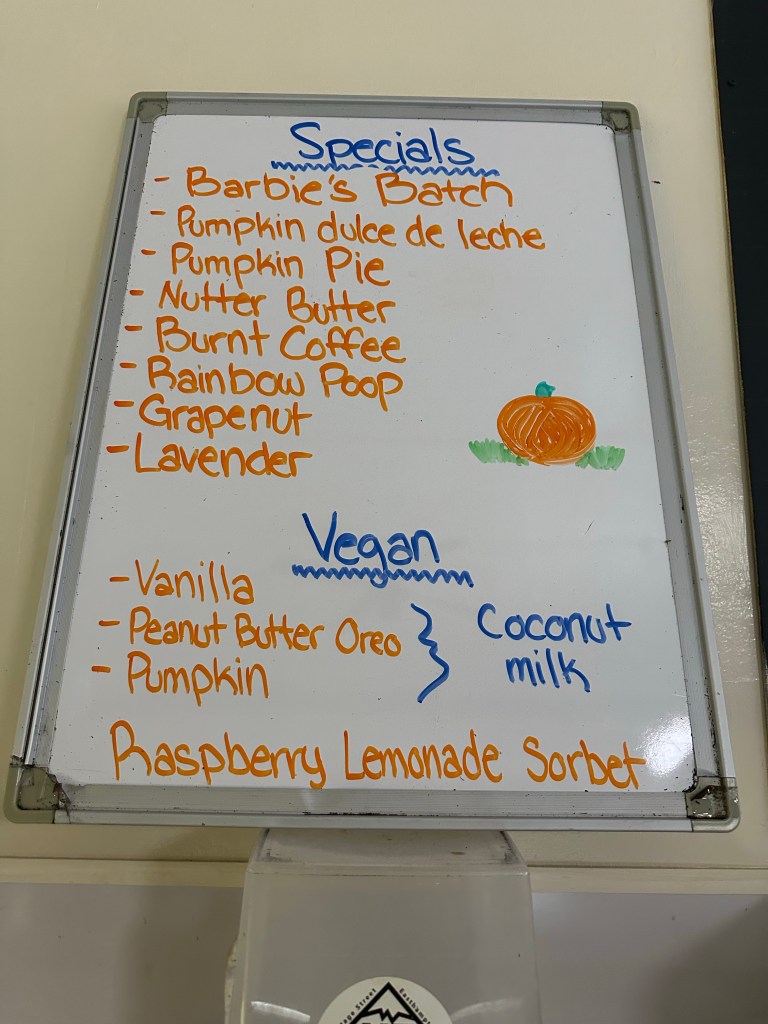 Specials
- Barbie's Batch
- Pumpkin dulce de leche
- Pumpkin Pie
- Nutter Butter
- Burnt Coffee
- Rainbow Poop
- Grapenut
- Lavender
Vegan
- Vanilla
- Peanut Butter Oreo
- Pumpkin
Coconut
milk
Raspberry Lemonade Sorbet